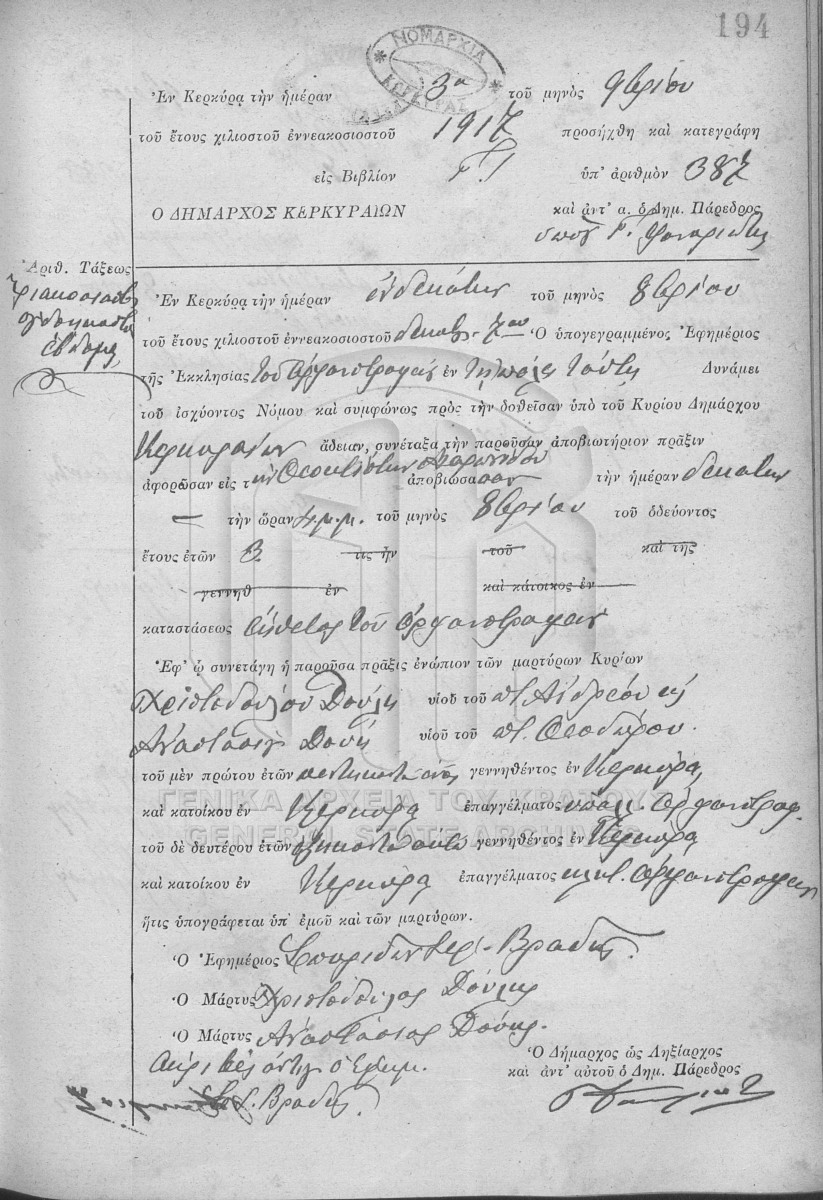 194
ΝΟΜΑΡΧΙΑ
ΚΕΡΚΥΡΑΣ
Ἐν Κερκύρᾳ τὴν ἡμέραν 3η τοῦ μηνὸς 9βρίου
τοῦ ἔτους χιλιοστοῦ ἐννεακοσιοστοῦ 1917 προσήχθη καὶ κατεγράφη
εἰς Βιβλίον Γ. ὑπ' ἀριθμὸν 387
Ο ΔΗΜΑΡΧΟΣ ΚΕΡΚΥΡΑΙΩΝ καὶ ἀντ' α. ὁ Δημ. Πάρεδρος
Ἀριθ. Τάξεως
τριακοσιοστὴ
ὀγδοηκοστὴ
ἑβδόμη
Ἐν Κερκύρᾳ τὴν ἡμέραν ἑνδεκάτην τοῦ μηνὸς 8βρίου
τοῦ ἔτους χιλιοστοῦ ἐννεακοσιοστοῦ δεκάτου 7ου Ὁ ὑπογεγραμμένος Ἐφημέριος
τῆς Ἐκκλησίας τοῦ Ὀρφανοτροφείου ἐν τῇ πόλει ταύτῃ Δυνάμει
τοῦ ἰσχύοντος Νόμου καὶ συμφώνως πρὸς τὴν δοθεῖσαν ὑπὸ τοῦ Κυρίου Δημάρχου
Κερκυραίων ἄδειαν, συνέταξα τὴν παροῦσαν ἀποβιωτήριον πρᾶξιν
ἀφορῶσαν εἰς τὴν Θεοκτίστην ἀποβιώσασαν τὴν ἡμέραν δεκάτην
τὴν ὥραν 4 μ.μ. τοῦ μηνὸς 8βρίου τοῦ ὁδεύοντος
ἔτους ἐτῶν 3 τις ἦν τοῦ καὶ τῆς
γεννηθ ἐν καὶ κάτοικος ἐν
καταστάσεως ἔκθετος τοῦ Ὀρφανοτροφείου
Ἐφ' ᾧ συνετάγη ἡ παροῦσα πρᾶξις ἐνώπιον τῶν μαρτύρων Κυρίων
Χριστοδούλου Δούλη υἱοῦ τοῦ πτ. Ἀνδρέου κ
Ἀναστασίου Δούη υἱοῦ τοῦ πτ. Θεοδώρου.
τοῦ μὲν πρώτου ἐτῶν πεντήκοντα ἑνὸς γεννηθέντος ἐν Κερκύρᾳ
καὶ κατοίκου ἐν Κερκύρᾳ ἐπαγγέλματος Ὀρφανοτροφ.
τοῦ δὲ δευτέρου ἐτῶν ἑξήκοντα ὀκτὼ γεννηθέντος ἐν Κερκύρᾳ
καὶ κατοίκου ἐν Κερκύρᾳ ἐπαγγέλματος Ὀρφανοτροφείου
ἥτις ὑπογράφεται ὑπ' ἐμοῦ καὶ τῶν μαρτύρων.
Ὁ Ἐφημέριος Σπυρίδων Ἱερ. Βραδῆς.
Ὁ Μάρτυς Χριστόδουλος Δούλης
Ὁ Μάρτυς Ἀναστάσιος Δούης.
Ἀκριβὲς ἀντίγ. ὁ Ἐφημ.
Βραδῆς.
Ὁ Δήμαρχος ὡς Ληξίαρχος
καὶ ἀντ' αὐτοῦ ὁ Δημ. Πάρεδρος
ΓΕΝΙΚΑ ΑΡΧΕΙΑ ΤΟΥ ΚΡΑΤΟΥΣ
GENERAL STATE ARCHIVES